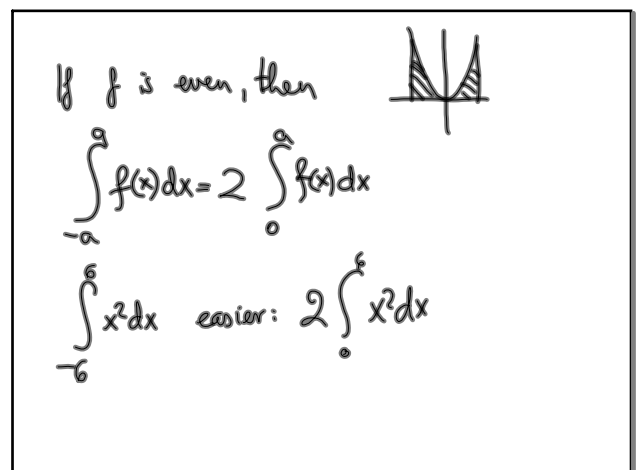 If f is even, then
∫_{-a}^{a} f(x)dx = 2 ∫_{0}^{a} f(x)dx
∫_{-6}^{6} x²dx easier: 2 ∫_{0}^{6} x²dx